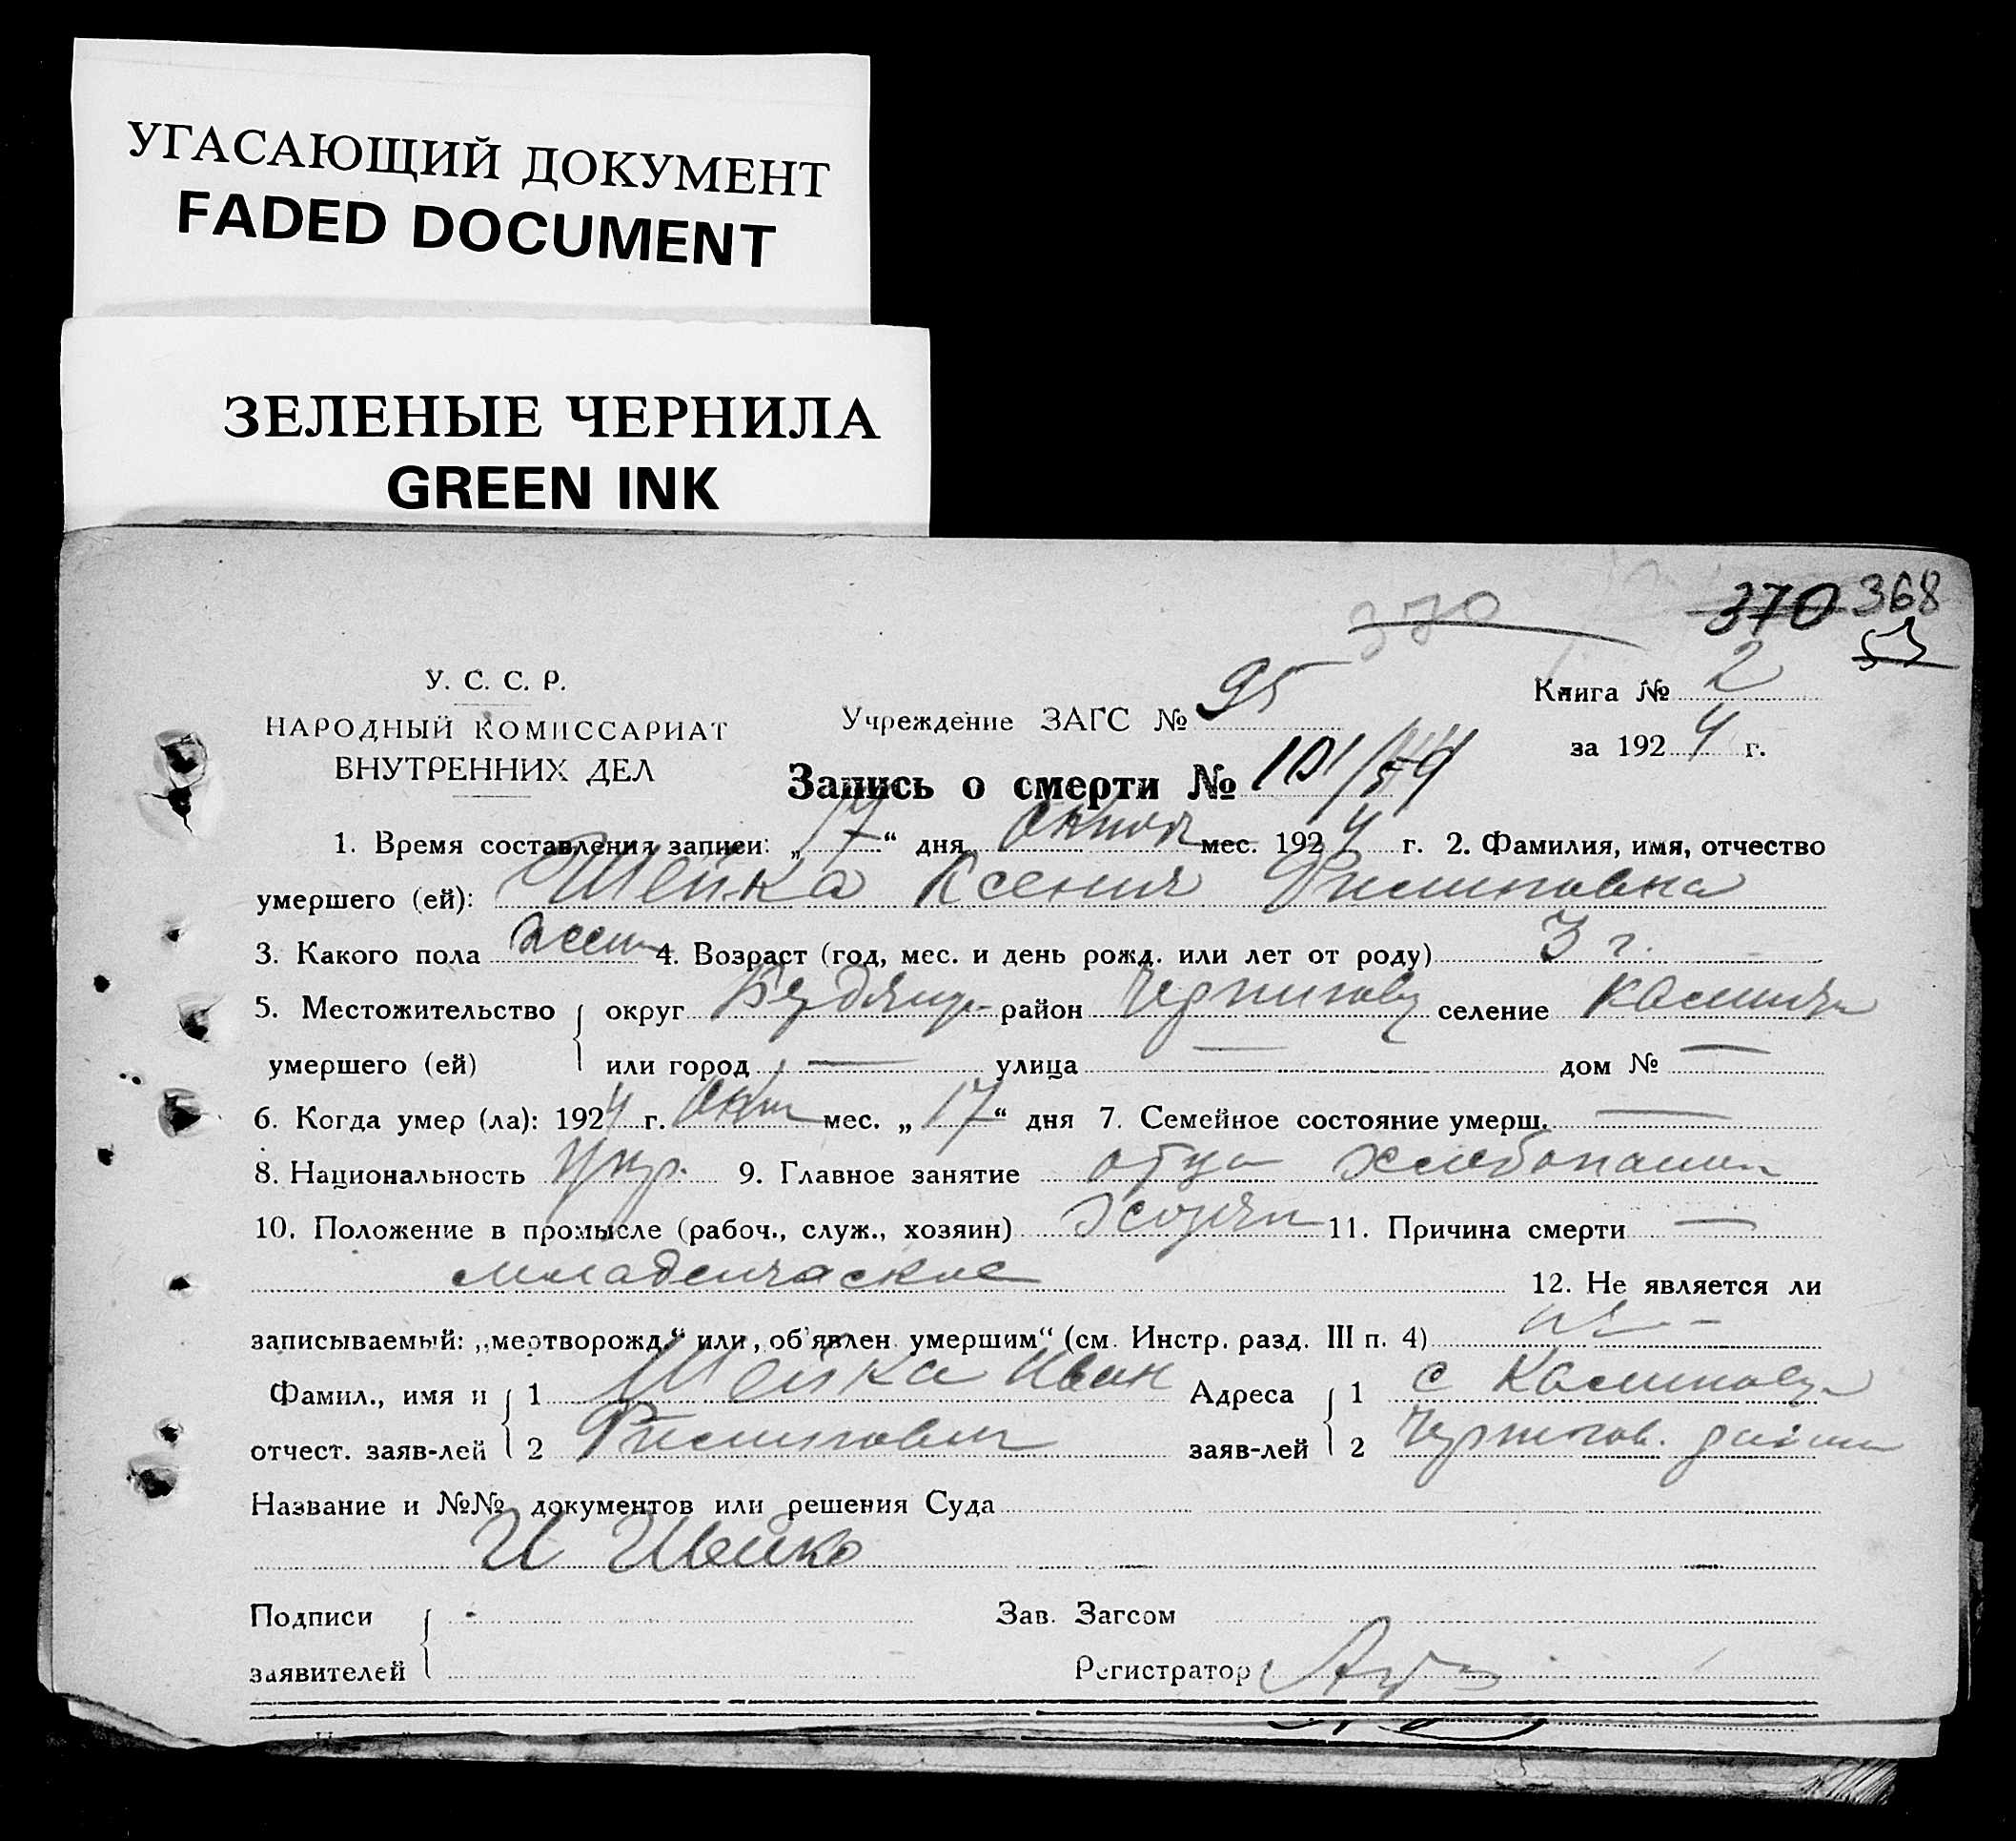 УГАСАЮЩИЙ ДОКУМЕНТ
FADED DOCUMENT
ЗЕЛЕНЫЕ ЧЕРНИЛА
GREEN INK
370 370 368
53
У. С. С. Р.
НАРОДНЫЙ КОМИССАРИАТ
ВНУТРЕННИХ ДЕЛ
Учреждение ЗАГС № 95
Книга № 2
за 1924 г.
Запись о смерти № 101/
1. Время составления записи: „17“ дня октяб мес. 1924 г. 2. Фамилия, имя, отчество
умершего (ей): Шейка Ксения Филиповна
3. Какого пола жен 4. Возраст (год, мес. и день рожд. или лет от роду) 3 г.
5. Местожительство { округ район Чернигов селение
умершего (ей) или город — улица — дом № —
6. Когда умер (ла): 1924 г. Окт мес. „17“ дня 7. Семейное состояние умерш. —
8. Национальность Укр. 9. Главное занятие отца хлебопашец
10. Положение в промысле (рабоч., служ., хозяин) хозяин 11. Причина смерти —
младенческая 12. Не является ли
записываемый: „мертворожд.“ или „об'явлен умершим“ (см. Инстр. разд. III п. 4) нет
Фамил., имя и { 1 Шейка Иван Адреса { 1 с Калиновка
отчест. заяв-лей 2 Филипович заяв-лей 2 Чернигов. района
Название и №№ документов или решения Суда
И Шейко
Подписи { Зав. Загсом
заявителей Регистратор